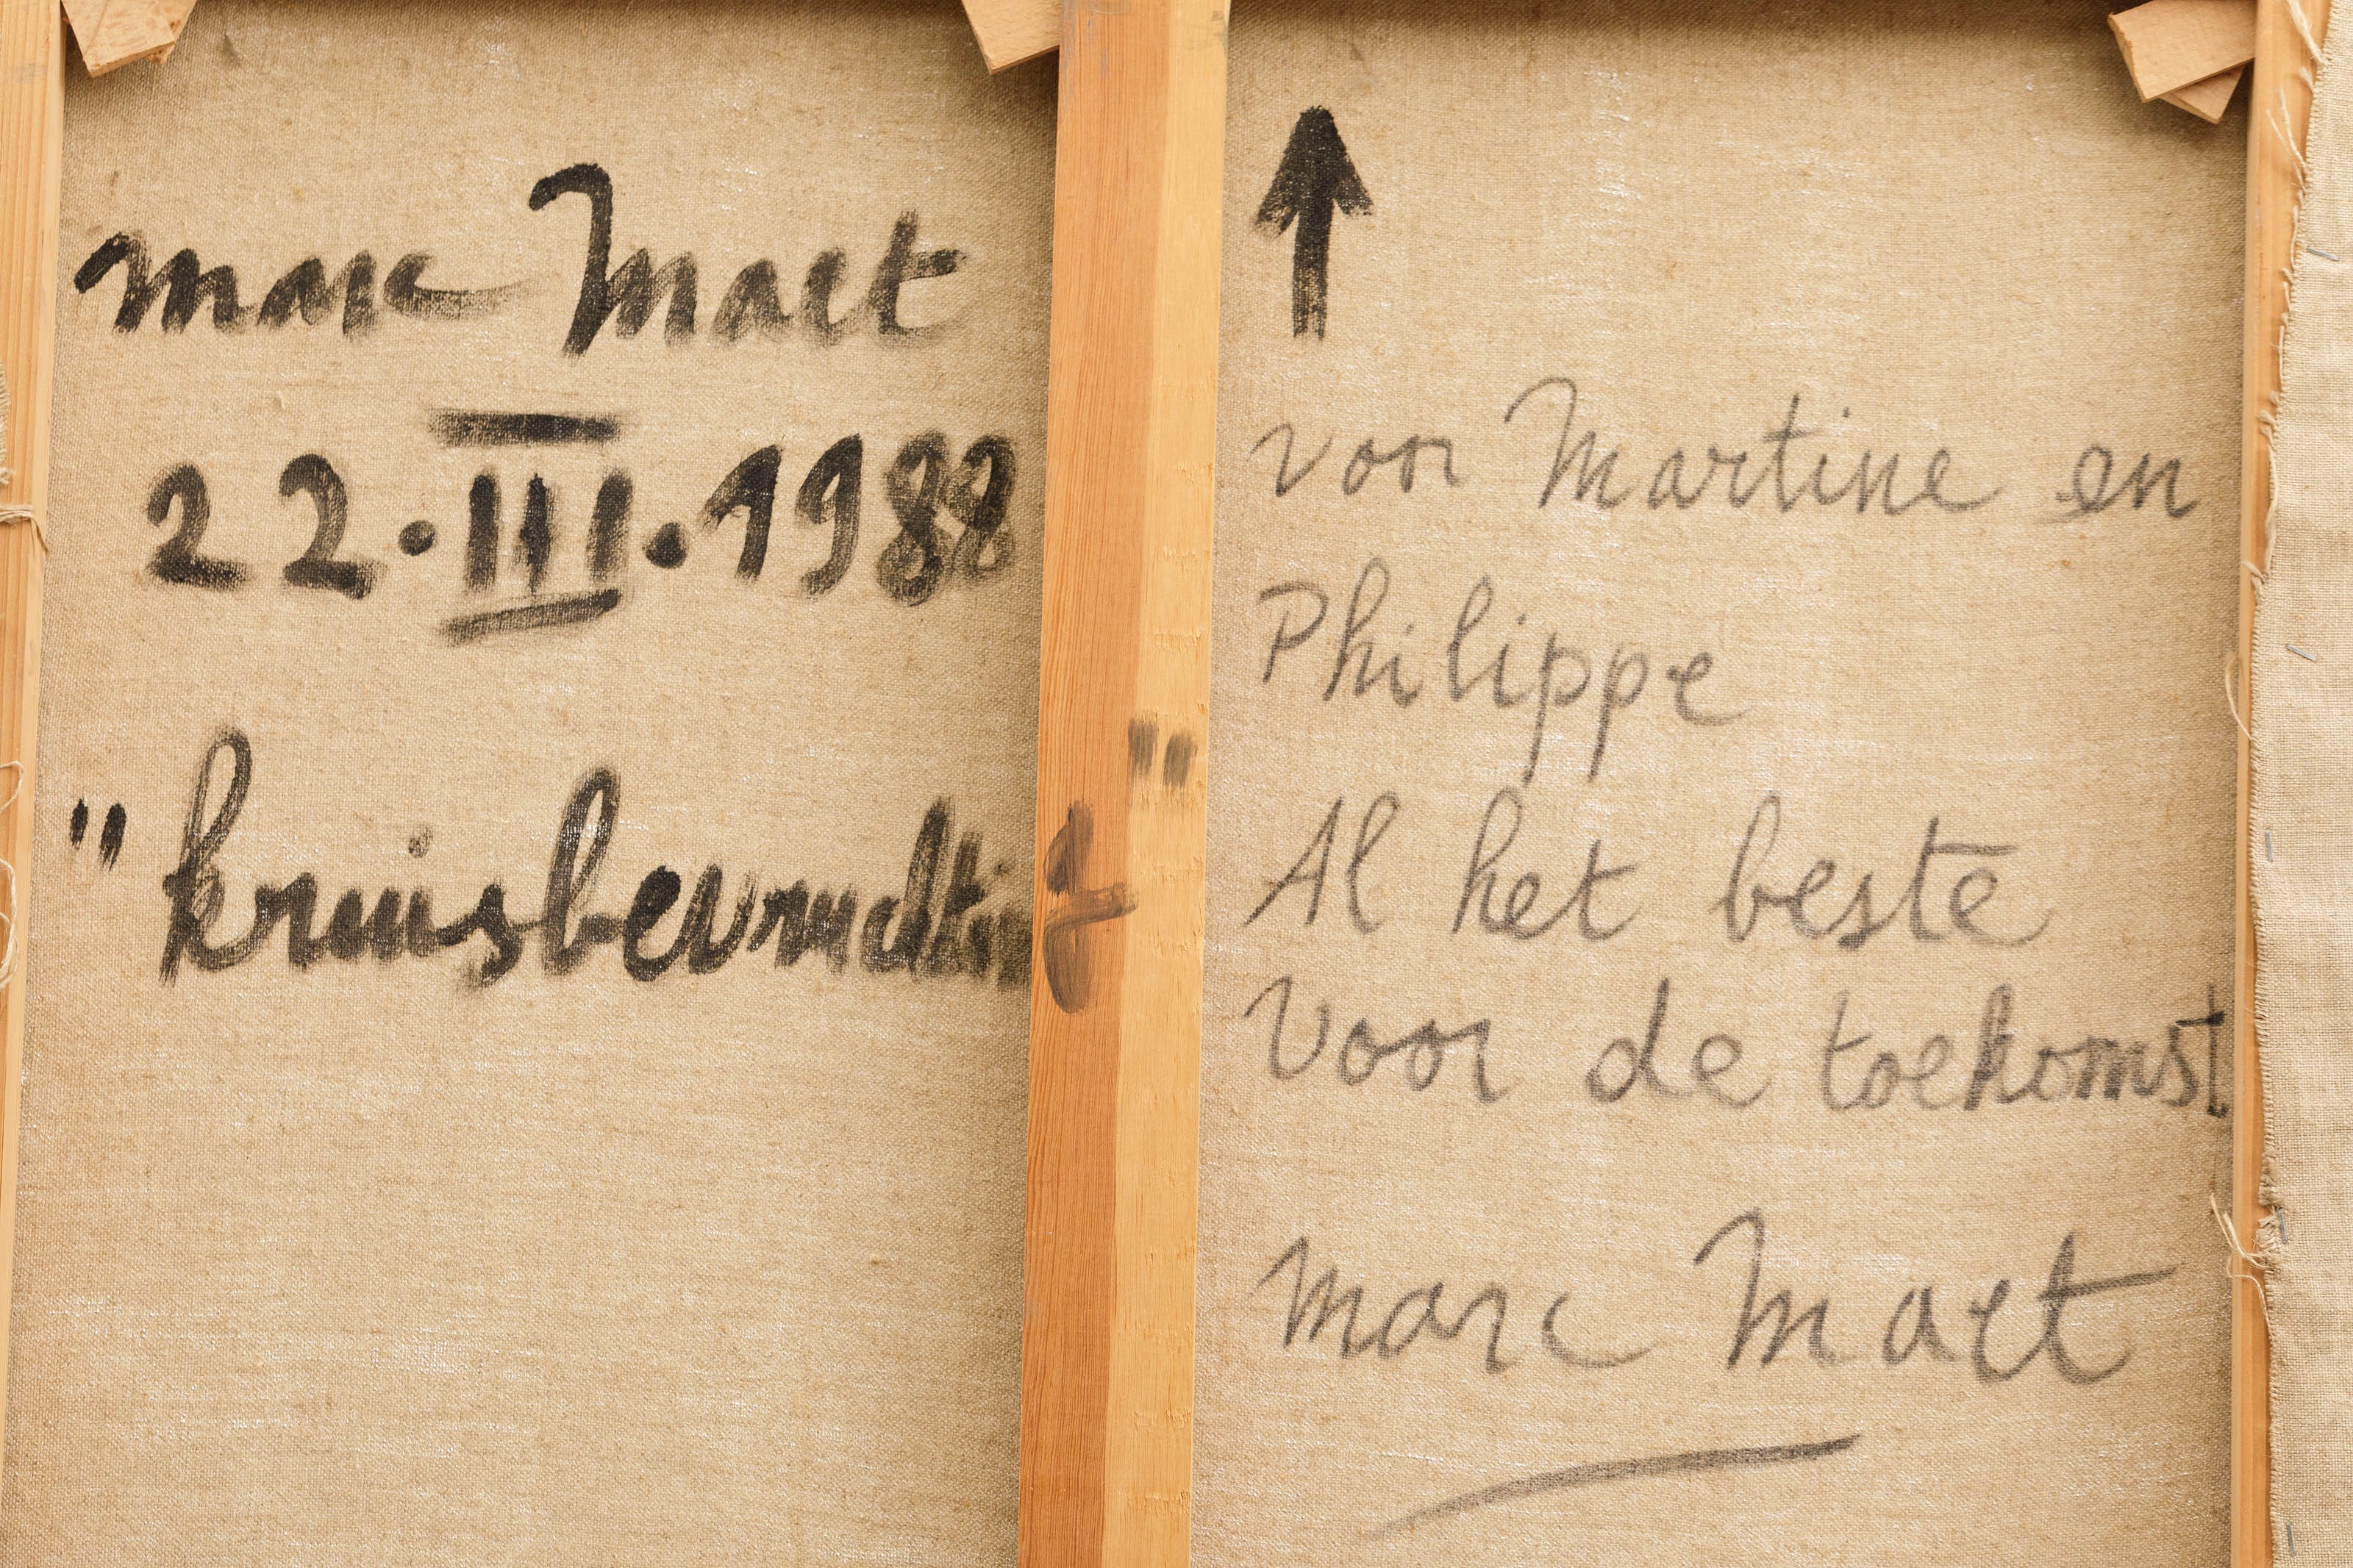 marc Maet
22.III.1988
"kruisbevruchting"
voor Martine en
Philippe
Al het beste
Voor de toekomst
marc Maet